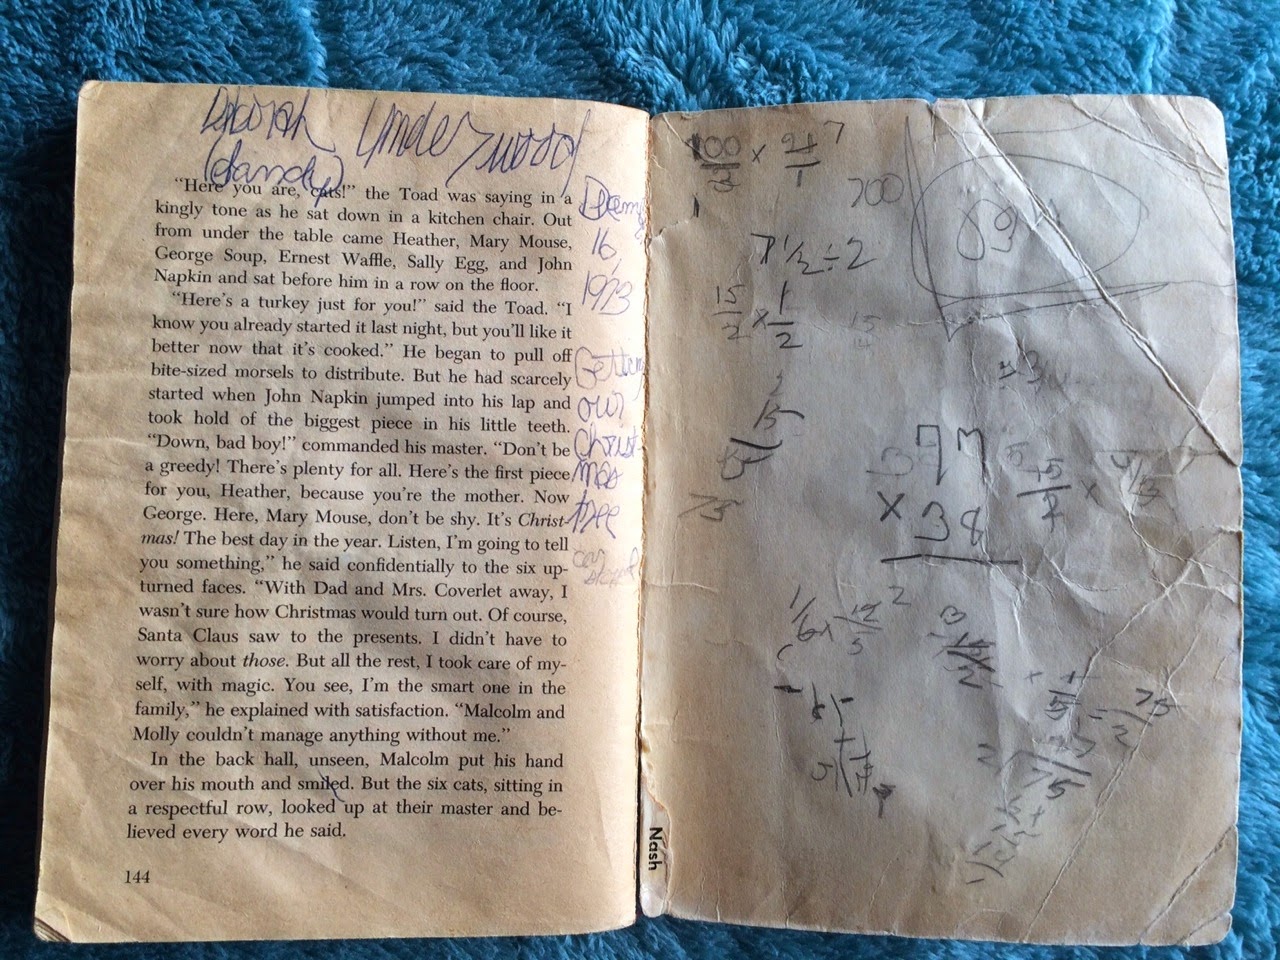 Deborah Underwood
(dandy)
"Here you are, cats!" the Toad was saying in a
kingly tone as he sat down in a kitchen chair. Out
from under the table came Heather, Mary Mouse,
George Soup, Ernest Waffle, Sally Egg, and John
Napkin and sat before him in a row on the floor.
"Here's a turkey just for you!" said the Toad. "I
know you already started it last night, but you'll like it
better now that it's cooked." He began to pull off
bite-sized morsels to distribute. But he had scarcely
started when John Napkin jumped into his lap and
took hold of the biggest piece in his little teeth.
"Down, bad boy!" commanded his master. "Don't be
a greedy! There's plenty for all. Here's the first piece
for you, Heather, because you're the mother. Now
George. Here, Mary Mouse, don't be shy. It's Christ-
mas! The best day in the year. Listen, I'm going to tell
you something," he said confidentially to the six up-
turned faces. "With Dad and Mrs. Coverlet away, I
wasn't sure how Christmas would turn out. Of course,
Santa Claus saw to the presents. I didn't have to
worry about those. But all the rest, I took care of my-
self, with magic. You see, I'm the smart one in the
family," he explained with satisfaction. "Malcolm and
Molly couldn't manage anything without me."
In the back hall, unseen, Malcolm put his hand
over his mouth and smiled. But the six cats, sitting in
a respectful row, looked up at their master and be-
lieved every word he said.
144
16,
1973
Getting
our
Christ-
mas
tree
Nash
700
7 1/2 ÷ 2
15/2 × 1/2
373
× 138